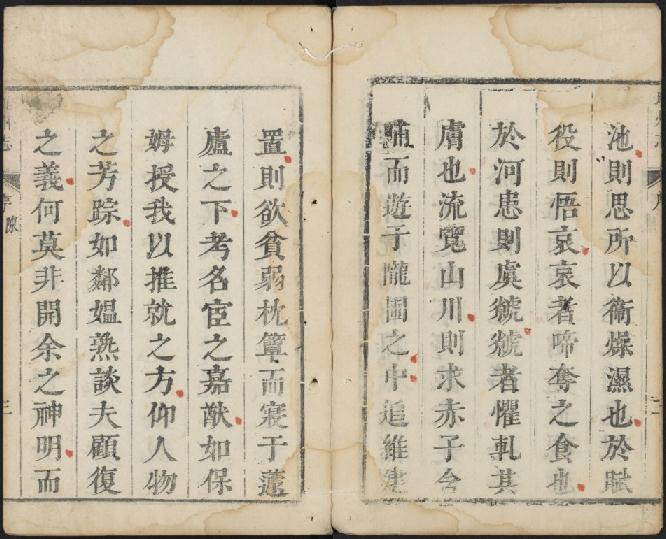 池則思所以衛燥濕也於賦
役則悟哀哀者啼奪之食也
於河患則虞虩虩者懼軋其
膚也流覽山川則求赤子舍
哺而遊于隴畝之中追維建
置則欲貧弱枕簟而寢于蘧
廬之下考名宦之嘉猷如保
姆授我以推就之方仰人物
之芳踪如鄰媼熟談夫顧復
之義何莫非開余之神明而
序
三